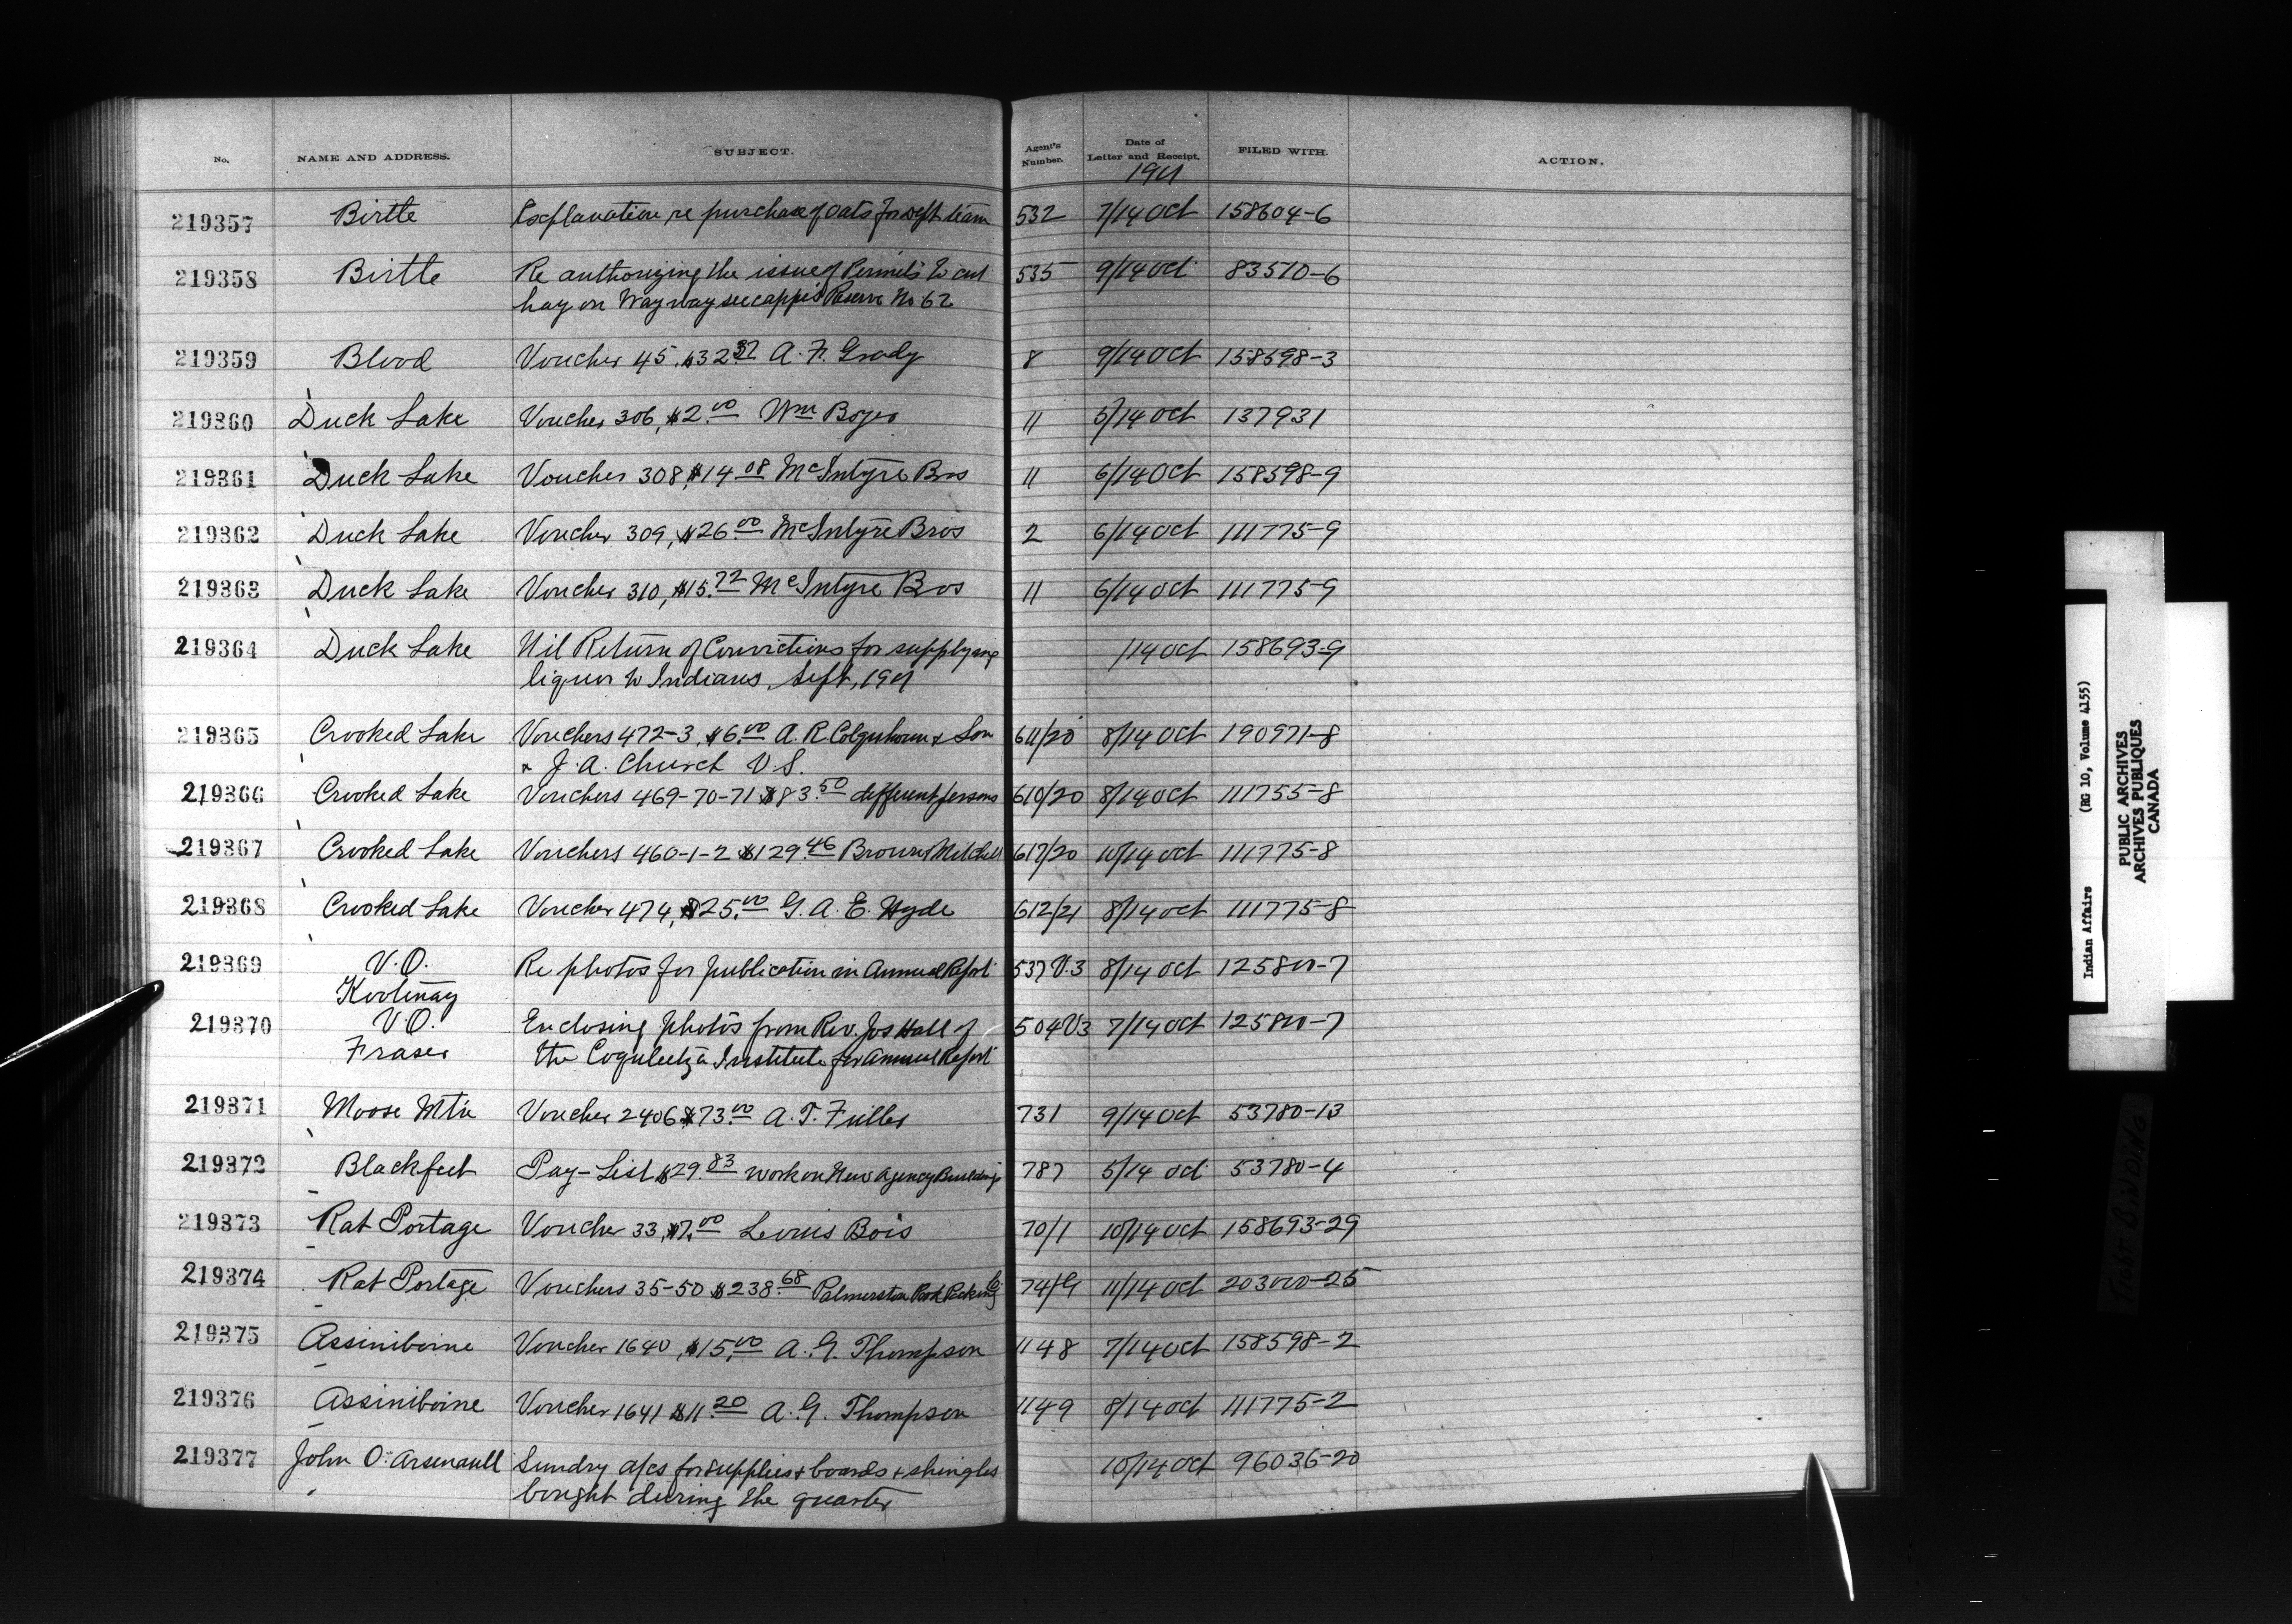 No. NAME AND ADDRESS. SUBJECT. Agent's Number. Date of Letter and Receipt. FILED WITH. ACTION.
1901
219357 Birtle Explanation re purchase of Oats for Dept team 532 7/14 Oct 158604-6
219358 Birtle Re authorizing the issue of Permits to cut 535 9/14 Oct 83570-6
hay on Waywayseecappo's Reserve No 62
219359 Blood Voucher 45, $32.37 A. F. Grady 8 9/14 Oct 158598-3
219360 Duck Lake Voucher 306, $2.00 Wm Boyer 11 5/14 Oct 137931
219361 Duck Lake Voucher 308, $14.08 McIntyre Bros 11 6/14 Oct 158598-9
219362 Duck Lake Voucher 309, $26.00 McIntyre Bros 2 6/14 Oct 111775-9
219363 Duck Lake Voucher 310, $15.72 McIntyre Bros 11 6/14 Oct 111775-9
219364 Duck Lake Nil Return of Convictions for supplying /14 Oct 158693-9
liquor to Indians, Sept, 1901
219365 Crooked Lake Vouchers 472-3, $6.00 A. R Colquhoun & Son 611/20 8/14 Oct 190971-8
& J. A. Church V.S.
219366 Crooked Lake Vouchers 469-70-71 $83.50 different persons 610/20 8/14 Oct 111755-8
219367 Crooked Lake Vouchers 460-1-2 $129.46 Brown & Mitchell 617/20 10/14 Oct 111775-8
219368 Crooked Lake Voucher 474, $25.00 G. A. E. Hyde 612/21 8/14 Oct 111775-8
219369 V.O. Re photos for publication in Annual Report 537 V.3 8/14 Oct 125800-7
Kootenay
219370 V.O. Enclosing photos from Rev. Jos Hall of 504 V3 7/14 Oct 125800-7
Fraser the Coqualeetza Institute for Annual Report
219371 Moose Mtn Voucher 2406 $73.00 A. T. Fuller 731 9/14 Oct 53780-13
219372 Blackfeet Pay-List $29.83 work on New Agency Buildings 787 5/14 Oct 53780-4
219373 Rat Portage Voucher 33, $7.00 Louis Bois 70/1 10/14 Oct 158693-29
219374 Rat Portage Vouchers 35-50 $238.68 Palmerston Pork Packing Co 11/14 Oct 203000-25
219375 Assiniboine Voucher 1640, $15.00 A. G. Thompson 1148 7/14 Oct 158598-2
219376 Assiniboine Voucher 1641 $11.20 A. G. Thompson 1149 8/14 Oct 111775-2
219377 John O. Arsenault Sundry a/cs for supplies & boards & shingles 10/14 Oct 96036-20
bought during the quarter
Indian Affairs (RG 10, Volume 4155)
PUBLIC ARCHIVES
ARCHIVES PUBLIQUES
CANADA
TIGHT BINDING